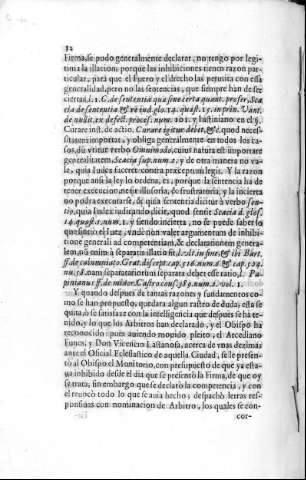 32
Firma, se podo generalmente declarar, no tengo por legi-
tima la illacion: porque las inhibiciones tienen razon par-
ticular, para que el Fuero y el derecho las permita con essa
generalidad, pero no las sentencias, que siempre han de ser
ciertas, l. 1. C. de sententia quæ sine certa quant. profer.
de sententia & re iud. glo. 14. quæst. 15.
num. 101. y Iustiniano en el §.
Curare inst. de actio. Curare igitur debet, &c. quod neces-
sitatem importat, y obliga generalmente en todos los ca-
sos, vt vtitur verbo Omnimodo, cuius natura est importare
generalitatem, Scacia sup. num. 2. y de otra manera no va-
le, quia Iudex faceret contra præceptum legis. Y la razon
porque assi la ley lo ordena, es, porque la sentencia ha de
tener execucion, ne sit illusoria, & frustratoria, y la incierta
no podra executarse, & quia sententia dicitur à verbo sen-
tio, quia Iudex iudicando dicit, quod sentit Scacia d. glos.
14. quæst. 1. num. 1. y siendo incierta, no se puede saber lo
que siente el Iuez, vnde non valet argumentum de inhibi-
tione generali ad competentiam, & declarationem genera-
lem,
ff. de calumniator. Grat. discept. cap. 516. num. 6. & cap. 174.
nu. 38. nam separatatorum separata debet esse ratio, l. Pa-
pinianus ff. de minor. Castro cons. 389. num. 2. vol. 1.
Y quando despues de tantas razones y fundamentos co-
mo se han propuesto, quedara algun rastro de duda; esta se
quita, ò se satisface con la inteligencia que despues se ha te-
nido, y lo que los Arbitros han declarado, y el Obispo ha
reconocido: pues auiendo mouido pleito, el Arcediano
Funes, y Don Vicencio Lastanosa, acerca de vnas dezimas
ante el Oficial Eclesiastico de aquella Ciudad, se le presen-
tò al Obispo el Monitorio, con presupuesto de que ya esta-
ua inhibido desde el dia que se presentò la Firma, de que oy
se trata, sin embargo que se declarò la competencia, y con
el reuocò todo lo que se auia hecho; despachò letras res-
ponsiuas con nominacion de Arbitro, los quales se con-
cor-